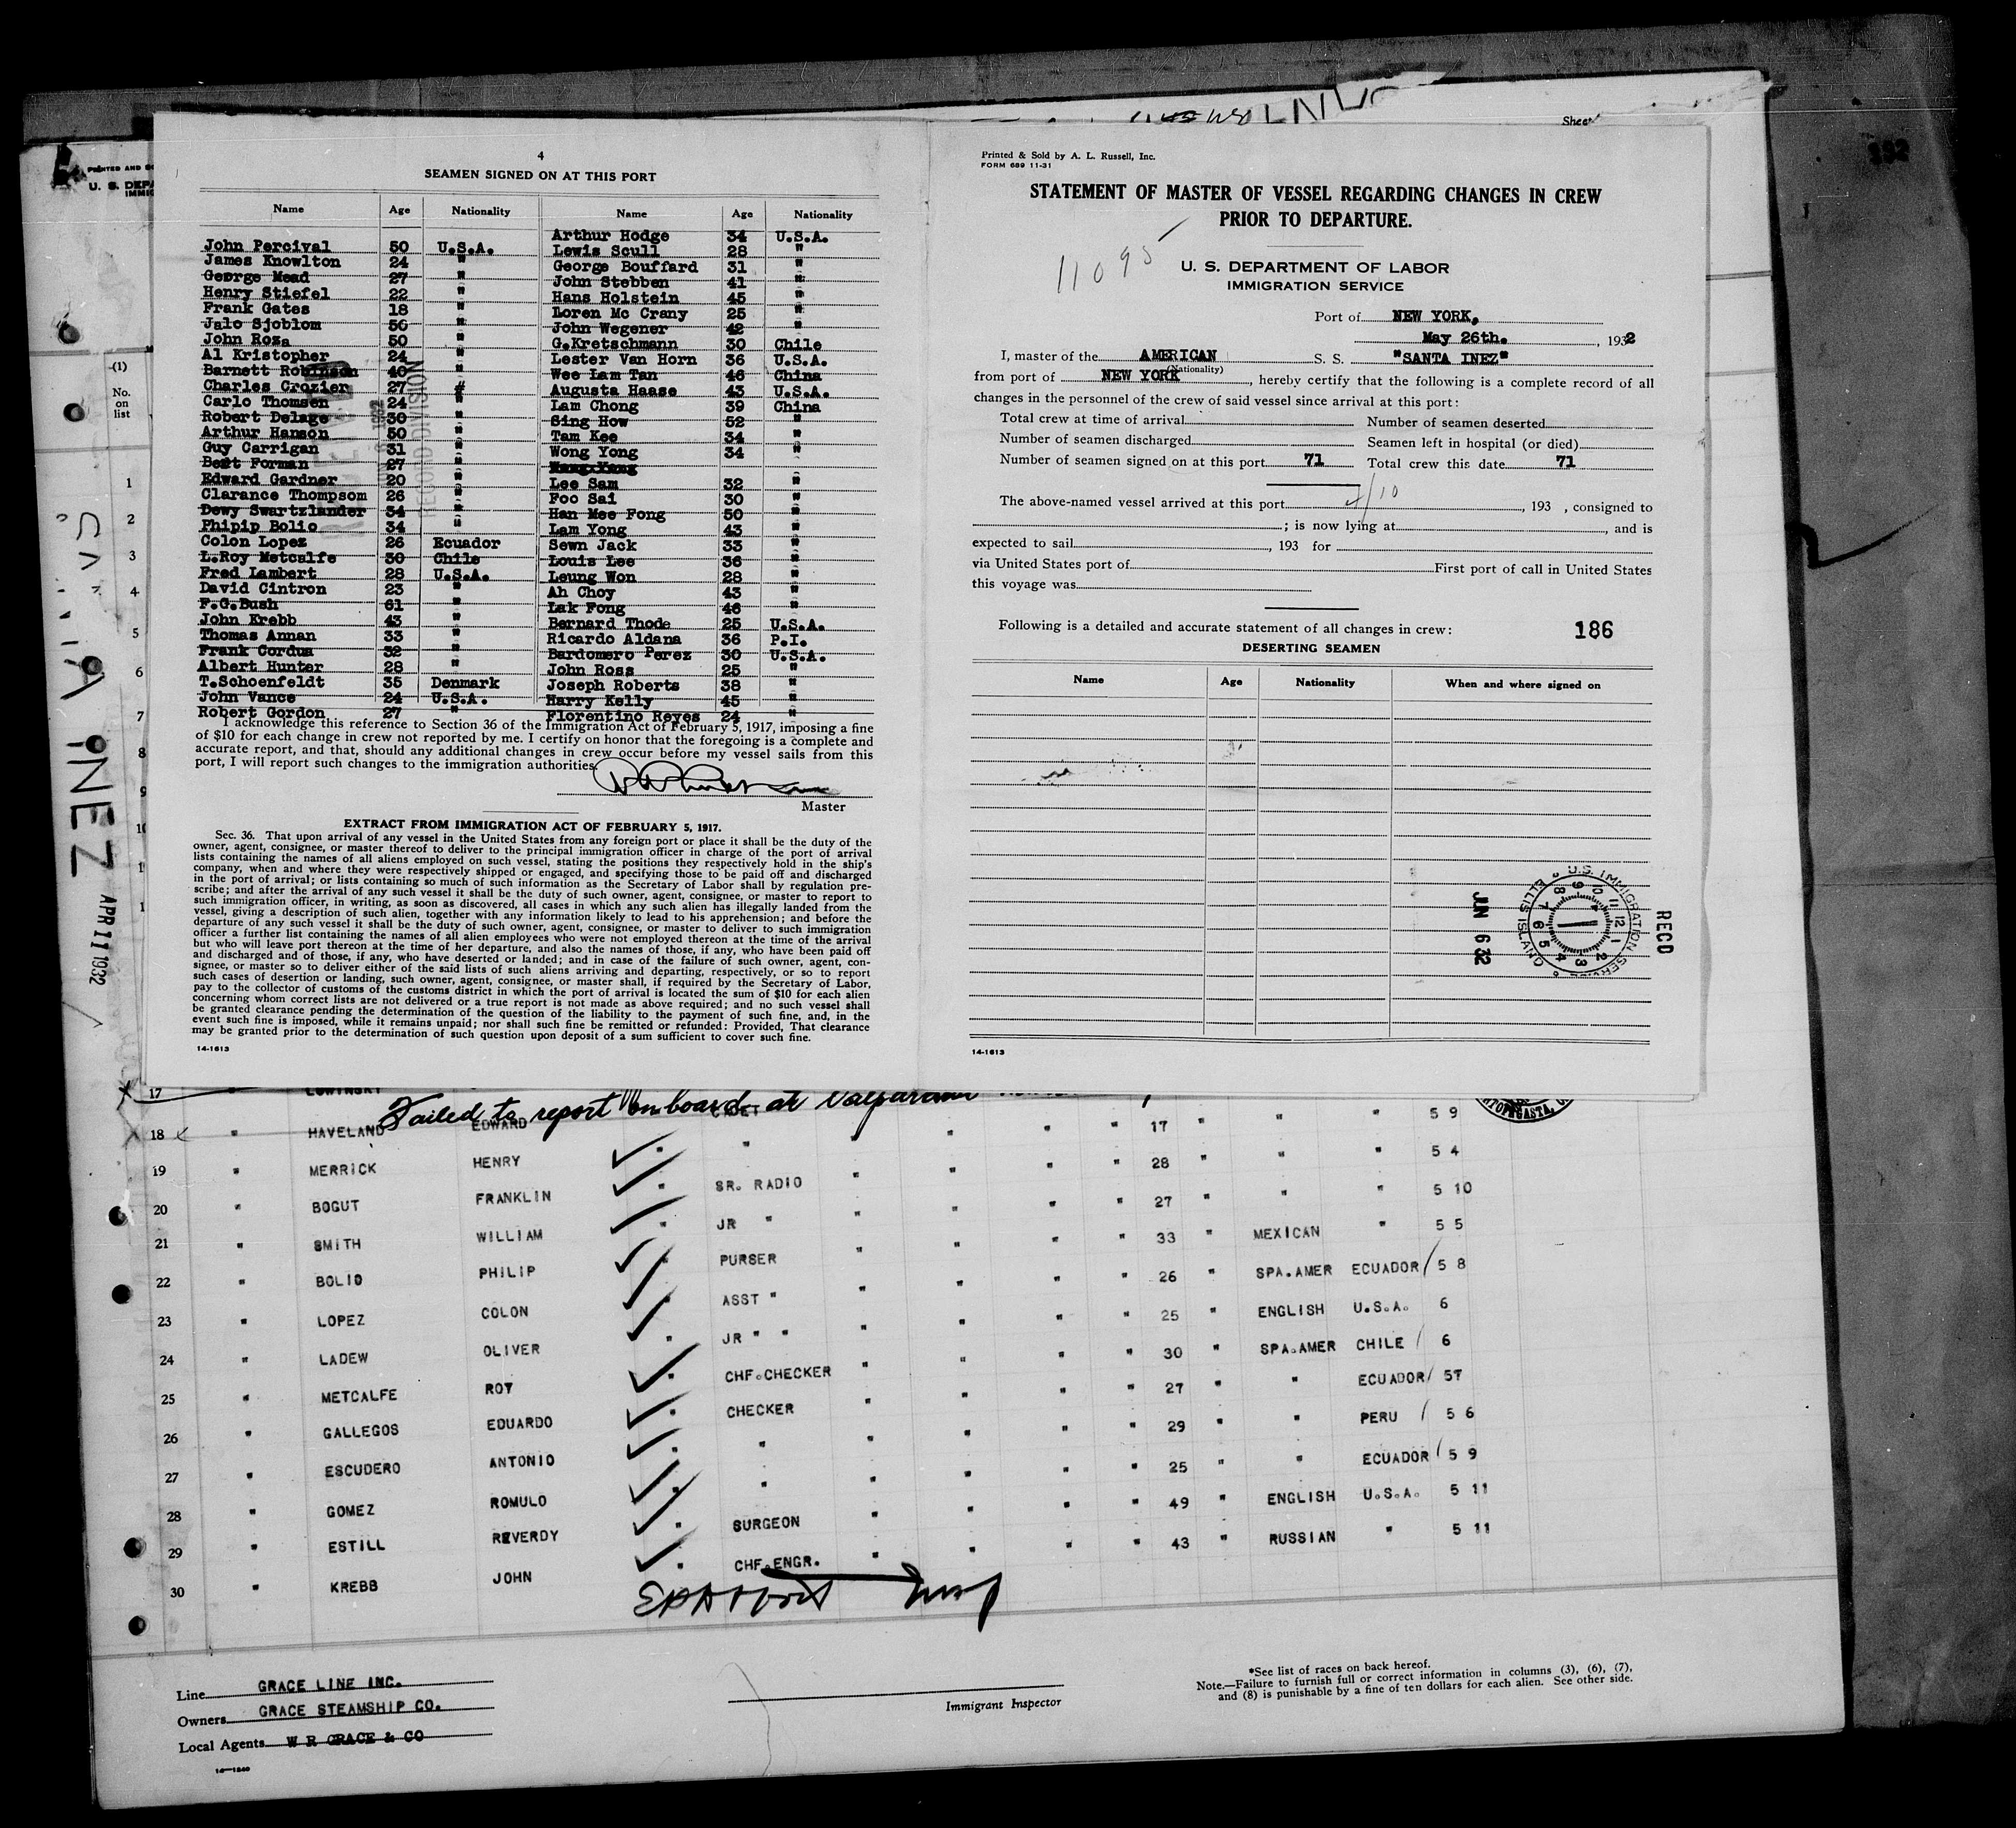 4
SEAMEN SIGNED ON AT THIS PORT
Name Age Nationality Name Age Nationality
Arthur Hodge 34 U.S.A.
John Percival 50 U.S.A. Lewis Scull 28 "
James Knowlton 24 " George Bouffard 31 "
George Mead 27 " John Stebben 41 "
Henry Stiefel 22 " Hans Holstein 45 "
Frank Gates 18 " Loren Mc Crany 25 "
Jalo Sjoblom 56 " John Wegener 42 "
John Roza 50 " G.Kretschmann 30 Chile
Al Kristopher 24 " Lester Van Horn 36 U.S.A.
Barnett Robinson 40 " Wee Lam Tan 46 China
Charles Crozier 27 " Augusta Haase 43 U.S.A.
Carlo Thomsen 24 " Lam Chong 39 China
Robert Delage 30 " Sing How 52 "
Arthur Hanson 50 " Tam Kee 34 "
Guy Carrigan 31 " Wong Yong 34 "
Bert Forman 27 "
Edward Gardner 20 " Lee Sam 32 "
Clarance Thompsom 26 " Foo Sai 30 "
Dewy Swartzlander 34 " Han Mee Fong 50 "
Phipip Bolio 34 " Lam Yong 43 "
Colon Lopez 26 Ecuador Sewn Jack 33 "
L.Roy Metcalfe 30 Chile Louis Lee 36 "
Fred Lambert 28 U.S.A. Leung Won 28 "
David Cintron 23 " Ah Choy 43 "
F.G.Bush 61 " Lak Fong 46 "
John Krebb 43 " Bernard Thode 25 U.S.A.
Thomas Annan 33 " Ricardo Aldana 36 P.I.
Frank Cordua 32 " Bardomero Perez 30 U.S.A.
Albert Hunter 28 " John Ross 25 "
T.Schoenfeldt 35 Denmark Joseph Roberts 38 "
John Vance 24 U.S.A. Harry Kelly 45 "
Robert Gordon 27 " Florentino Reyes 24 "
I acknowledge this reference to Section 36 of the Immigration Act of February 5, 1917, imposing a fine
of $10 for each change in crew not reported by me. I certify on honor that the foregoing is a complete and
accurate report, and that, should any additional changes in crew occur before my vessel sails from this
port, I will report such changes to the immigration authorities.
Master
EXTRACT FROM IMMIGRATION ACT OF FEBRUARY 5, 1917.
Sec. 36. That upon arrival of any vessel in the United States from any foreign port or place it shall be the duty of the
owner, agent, consignee, or master thereof to deliver to the principal immigration officer in charge of the port of arrival
lists containing the names of all aliens employed on such vessel, stating the positions they respectively hold in the ship's
company, when and where they were respectively shipped or engaged, and specifying those to be paid off and discharged
in the port of arrival; or lists containing so much of such information as the Secretary of Labor shall by regulation pre-
scribe; and after the arrival of any such vessel it shall be the duty of such owner, agent, consignee, or master to report to
such immigration officer, in writing, as soon as discovered, all cases in which any such alien has illegally landed from the
vessel, giving a description of such alien, together with any information likely to lead to his apprehension; and before the
departure of any such vessel it shall be the duty of such owner, agent, consignee, or master to deliver to such immigration
officer a further list containing the names of all alien employees who were not employed thereon at the time of the arrival
but who will leave port thereon at the time of her departure, and also the names of those, if any, who have been paid off
and discharged and of those, if any, who have deserted or landed; and in case of the failure of such owner, agent, con-
signee, or master so to deliver either of the said lists of such aliens arriving and departing, respectively, or so to report
such cases of desertion or landing, such owner, agent, consignee, or master shall, if required by the Secretary of Labor,
pay to the collector of customs of the customs district in which the port of arrival is located the sum of $10 for each alien
concerning whom correct lists are not delivered or a true report is not made as above required; and no such vessel shall
be granted clearance pending the determination of the question of the liability to the payment of such fine, and, in the
event such fine is imposed, while it remains unpaid; nor shall such fine be remitted or refunded: Provided, That clearance
may be granted prior to the determination of such question upon deposit of a sum sufficient to cover such fine.
14-1613
Printed & Sold by A. L. Russell, Inc.
FORM 689 11-31
STATEMENT OF MASTER OF VESSEL REGARDING CHANGES IN CREW
PRIOR TO DEPARTURE.
11095
U. S. DEPARTMENT OF LABOR
IMMIGRATION SERVICE
Port of NEW YORK,
May 26th. , 1932
I, master of the AMERICAN S. S. "SANTA INEZ"
(Nationality)
from port of NEW YORK , hereby certify that the following is a complete record of all
changes in the personnel of the crew of said vessel since arrival at this port:
Total crew at time of arrival Number of seamen deserted
Number of seamen discharged Seamen left in hospital (or died)
Number of seamen signed on at this port 71 Total crew this date 71
The above-named vessel arrived at this port 4/10 , 193 , consigned to
; is now lying at , and is
expected to sail , 193 for
via United States port of First port of call in United States
this voyage was
Following is a detailed and accurate statement of all changes in crew: 186
DESERTING SEAMEN
Name Age Nationality When and where signed on
RECD
U.S. IMMIGRATION SERVICE ELLIS ISLAND
JUN 6 32
14-1613
Sheet
PRINTED AND
U. S. DEPA
IMMIG
(1)
No.
on
list
1
2
3
4
5
6
7
8
9
SANTA INEZ APR 11 1932
RECORD DIVISION
17 LOWINSKY
Failed to report on board at Valparaiso
18 " HAVELAND EDWARD CADET " " " " 17 " " " 5 9
19 " MERRICK HENRY " " " " " 28 " " " 5 4
20 " BOGUT FRANKLIN SR. RADIO " " " " 27 " " " 5 10
21 " SMITH WILLIAM JR " " " " " 33 " MEXICAN " 5 5
22 " BOLIO PHILIP PURSER " " " " 26 " SPA.AMER ECUADOR 5 8
23 " LOPEZ COLON ASST " " " " " 25 " ENGLISH U.S.A. 6
24 " LADEW OLIVER JR " " " " " " 30 " SPA.AMER CHILE 6
25 " METCALFE ROY CHF.CHECKER " " " " 27 " " ECUADOR 57
26 " GALLEGOS EDUARDO CHECKER " " " " 29 " " PERU 5 6
27 " ESCUDERO ANTONIO " " " " " 25 " " ECUADOR 5 9
28 " GOMEZ ROMULO " " " " " 49 " ENGLISH U.S.A. 5 11
29 " ESTILL REVERDY SURGEON " " " " 43 " RUSSIAN " 5 11
30 " KREBB JOHN CHF.ENGR.
Line GRACE LINE INC.
Owners GRACE STEAMSHIP CO.
Local Agents W R GRACE & CO
14-1240
Immigrant Inspector
*See list of races on back hereof.
Note.—Failure to furnish full or correct information in columns (3), (6), (7),
and (8) is punishable by a fine of ten dollars for each alien. See other side.